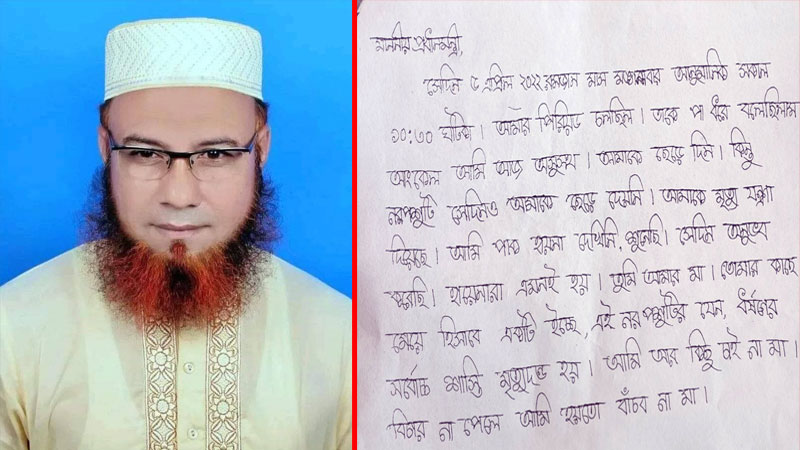 মাননীয় প্রধানমন্ত্রী,
সেদিন ৫ এপ্রিল ২০২২ রমজান মাস মঙ্গলবার আনুমানিক সকাল
১০:৩০ ঘটিকা। আমার পিরিয়ড চলছিল। তাকে পা ধরে বলেছিলাম
আংকেল আমি আজ অসুস্থ। আমাকে ছেড়ে দিন। কিন্তু
নরপশুটি সেদিনও আমাকে ছেড়ে দেয়নি। আমাকে মৃত্যু যন্ত্রণা
দিয়েছে। আমি পাক হায়না দেখিনি, শুনেছি। সেদিন অনুভব
করেছি। হায়েনারা এমনই হয়। তুমি আমার মা। তোমার কাছে
মেয়ে হিসাবে একটি ইচ্ছে, এই নরপশুটির যেন, ধর্ষনের
সর্বোচ্চ শাস্তি মৃত্যুদন্ড হয়। আমি আর কিছু চাই না মা।
বিচার না পেলে আমি হয়তো বাঁচব না মা।